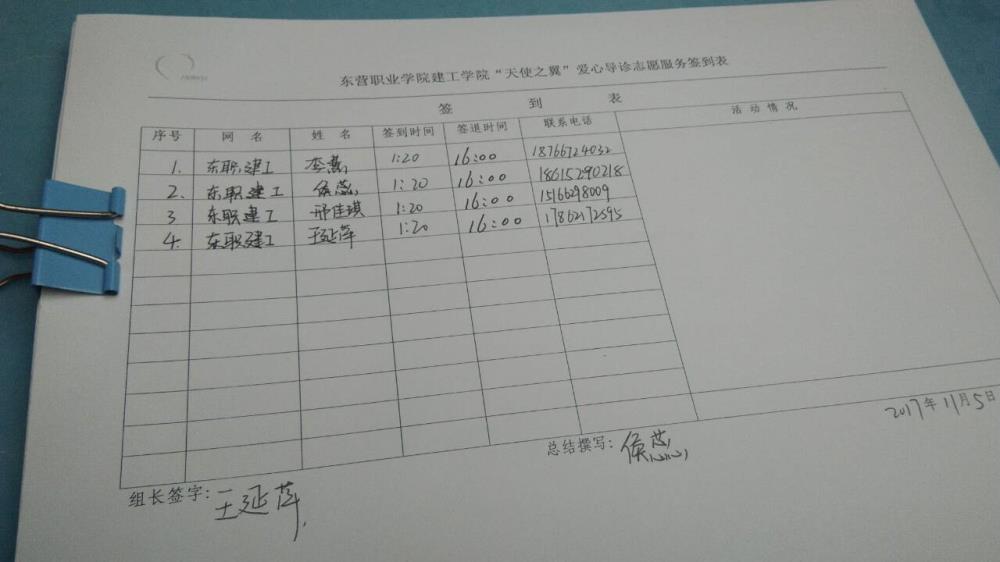 东营职业学院建工学院“天使之翼”爱心导诊志愿服务签到表
签 到 表
序号 网 名 姓 名 签到时间 签退时间 联系电话 活动情况
1. 东职建工 李燕 1:20 16:00 18766724032
2. 东职建工 侯蕊 1:20 16:00 18615290218
3 东职建工 邢佳琪 1:20 16:00 15166298009
4. 东职建工 王延萍 1:20 16:00 17862172595
2017年11月5日
总结撰写：侯蕊
组长签字：王延萍